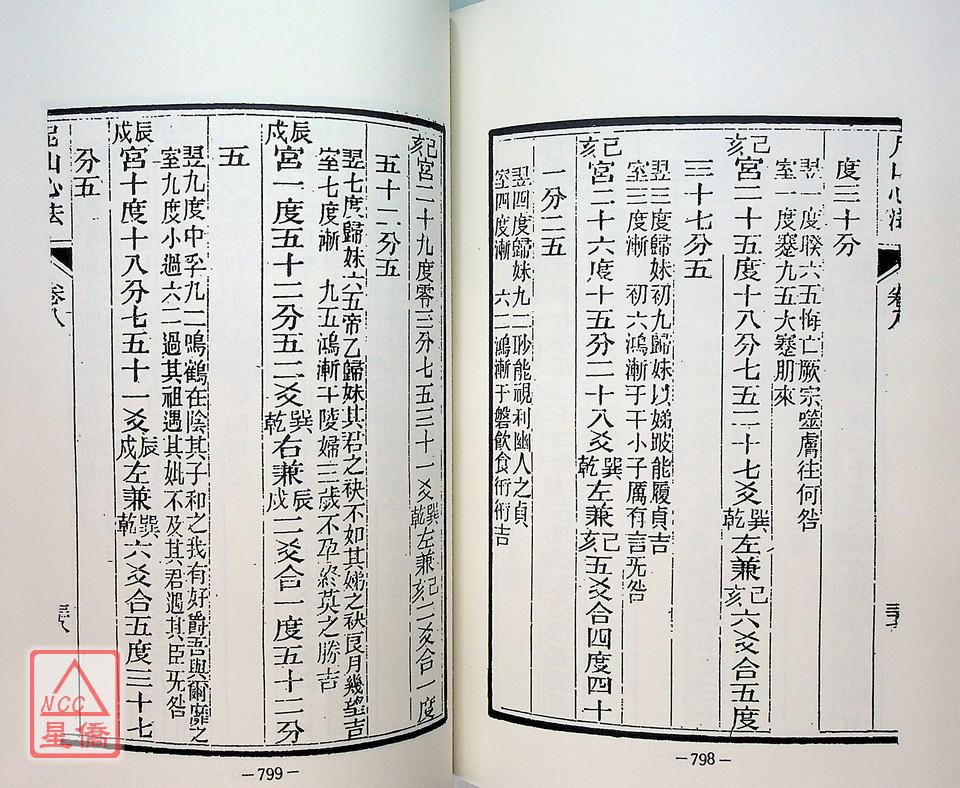 度三十分
翌一度睽六五悔亡厥宗噬膚往何咎
室一度蹇九五大蹇朋來
巳亥宮二十五度十八分七五二十七爻巽乾左兼巳亥六爻合五度
三十七分五
翌三度歸妹初九歸妹以娣跛能履貞吉
室三度漸初六鴻漸于干小子厲有言旡咎
巳亥宮二十六度十五分二十八爻巽乾左兼巳亥五爻合四度四十
一分二五
翌四度歸妹九二眇能視利幽人之貞
室四度漸六二鴻漸于磐飲食衎衎吉
卷八
—798—
巳亥宮二十九度零三分七五三十一爻巽乾左兼巳亥二爻合一度
五十二分五
翌七度歸妹六五帝乙歸妹其君之袂不如其娣之袂良月幾望吉
室七度漸九五鴻漸于陵婦三歲不孕終莫之勝吉
辰戍宮一度五十二分五二爻巽乾右兼辰戍二爻合一度五十二分
五
翌九度中孚九二鳴鶴在陰其子和之我有好爵吾與爾靡之
室九度小過六二過其祖遇其妣不及其君遇其臣旡咎
辰戍宮十度十八分七五十一爻辰戍左兼巽乾六爻合五度三十七
分五
山心法
卷八
—799—
NCC
星僑